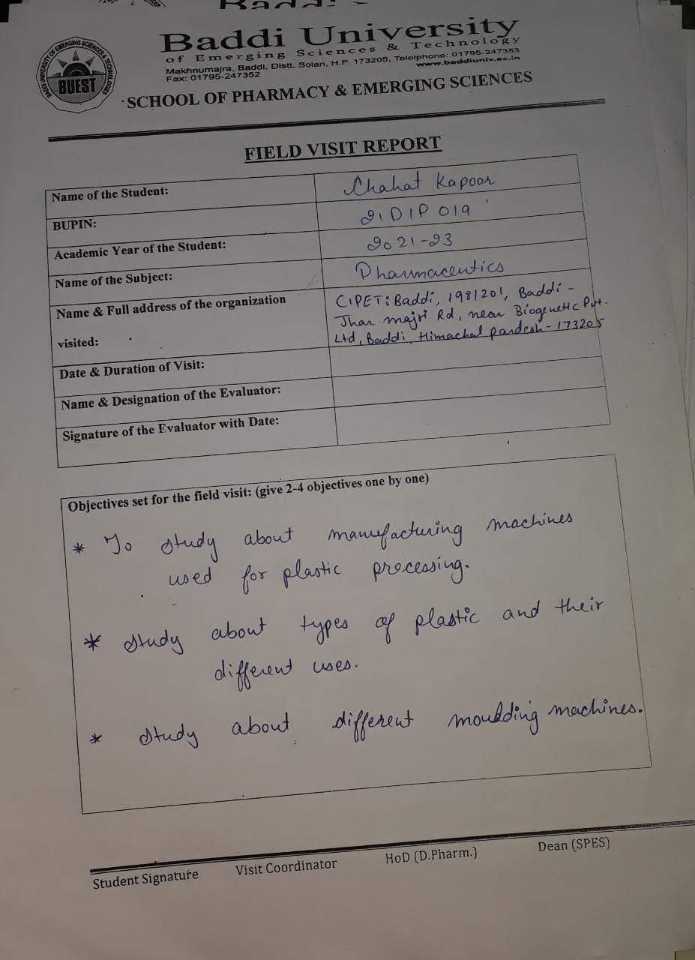 Baddi University
of Emerging Sciences & Technology
Makhnumajra, Baddi, Distt. Solan, H.P. 173205, Telelphone: 01795-247353
Fax: 01795-247352 www.baddiuniv.ac.in
BUEST
SCHOOL OF PHARMACY & EMERGING SCIENCES
FIELD VISIT REPORT
Name of the Student: Chahat Kapoor
BUPIN: 21DIP019
Academic Year of the Student: 2021-23
Name of the Subject: Pharmaceutics
Name & Full address of the organization visited:
CIPET: Baddi, 1981201, Baddi -
Jhar majri Rd, near Biogenetic Pvt.
Ltd, Baddi, Himachal pardesh - 173205
Date & Duration of Visit:
Name & Designation of the Evaluator:
Signature of the Evaluator with Date:
Objectives set for the field visit: (give 2-4 objectives one by one)
* To study about manufacturing machines
used for plastic processing.
* study about types of plastic and their
different uses.
* study about different moulding machines.
Student Signature Visit Coordinator HoD (D.Pharm.) Dean (SPES)